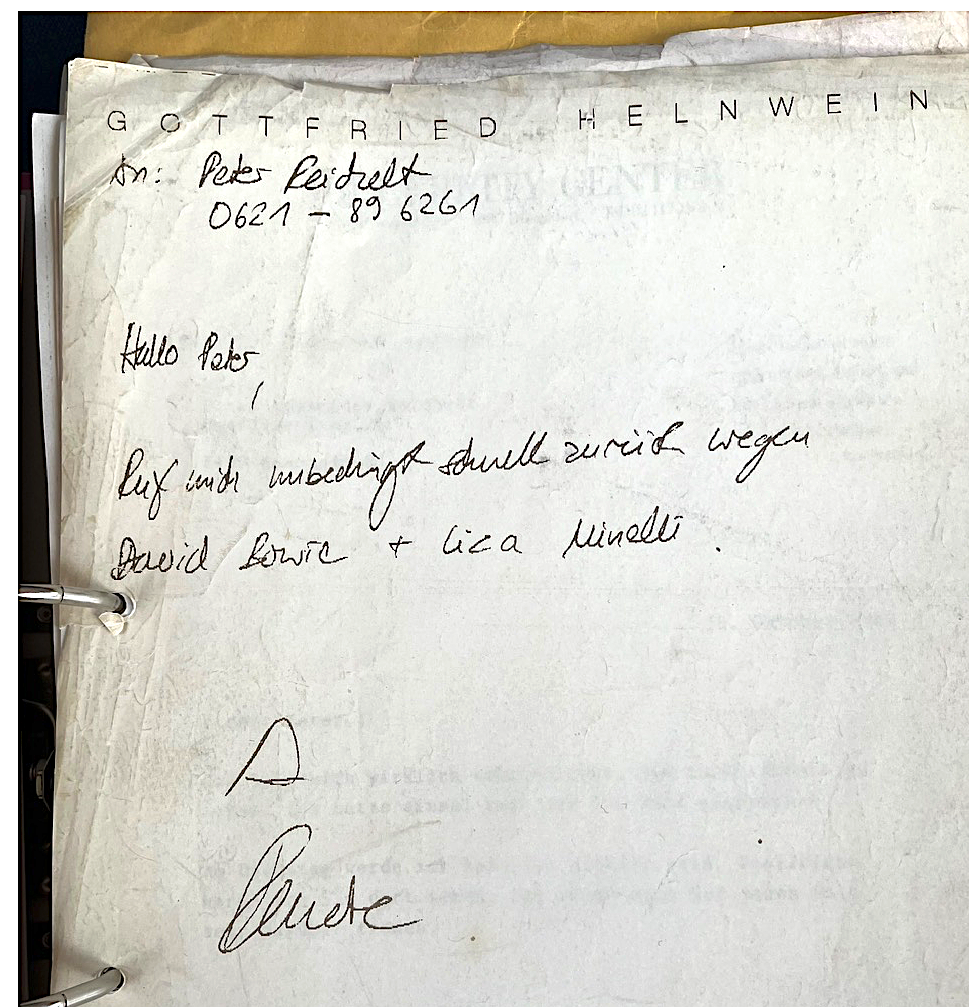 GOTTFRIED HELNWEIN
An: Peter Reichelt
0621 – 89 6261
Hallo Peter,
Ruf mich unbedingt schnell zurück wegen
David Bowie + Liza Minelli.
Renate